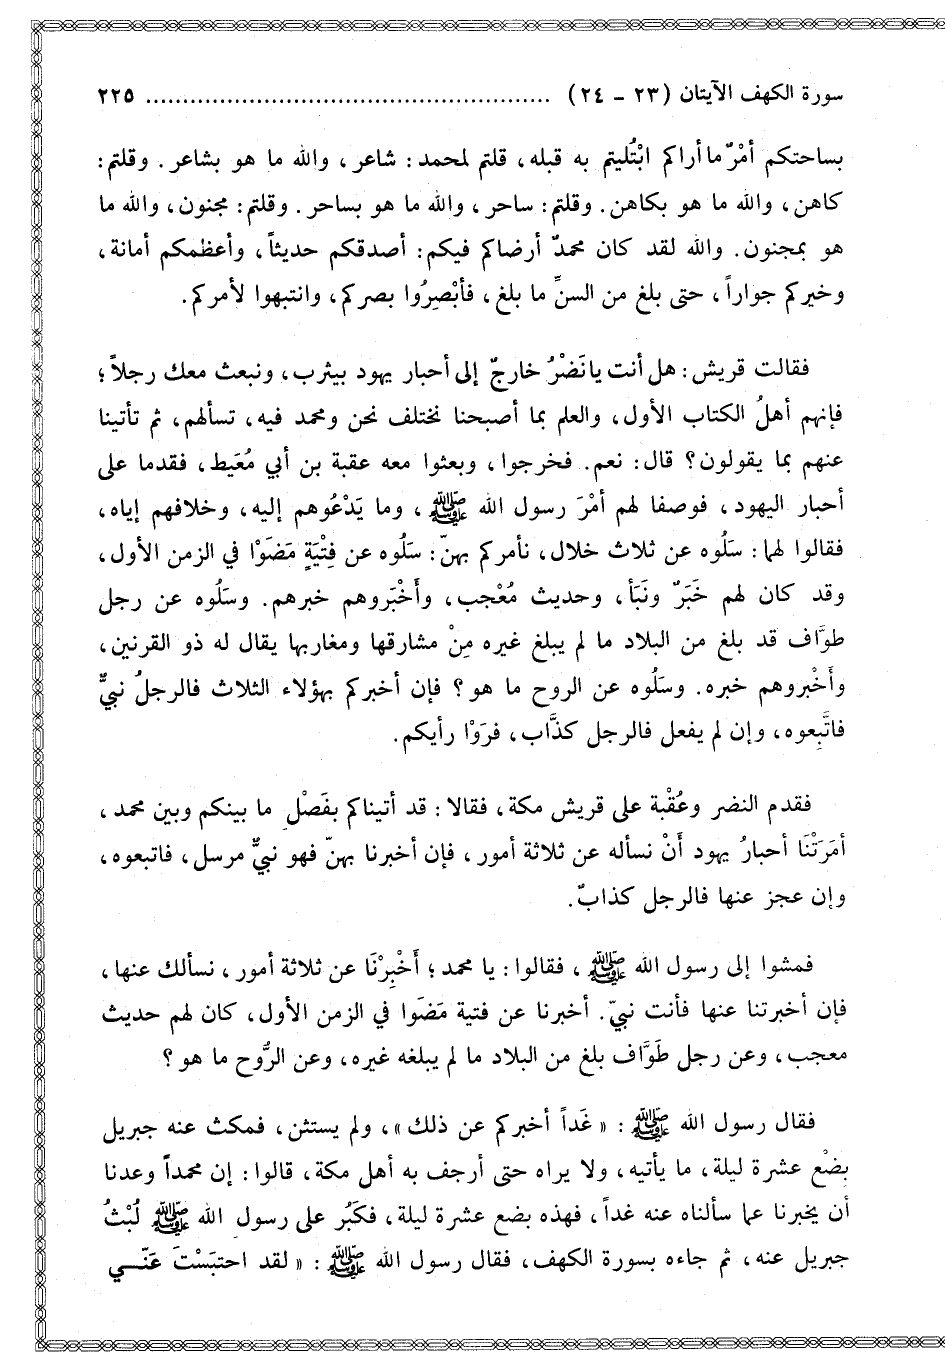 سورة الكهف الآيتان (٢٣ - ٢٤) ........................................................ ٢٢٥
بساحتكم أمْرٌ ما أراكم ابْتُليتم به قبله، قلتم لمحمد: شاعر، والله ما هو بشاعر. وقلتم:
كاهن، والله ما هو بكاهن. وقلتم: ساحر، والله ما هو بساحر. وقلتم: مجنون، والله ما
هو بمجنون. والله لقد كان محمدٌ أرضاكم فيكم: أصدقكم حديثاً، وأعظمكم أمانة،
وخيركم جواراً، حتى بلغ من السنِّ ما بلغ، فأبْصِرُوا بصركم، وانتبهوا لأمركم.
فقالت قريش: هل أنت يا نَضْرُ خارجٌ إلى أحبار يهود بيثرب، ونبعث معك رجلاً؛
فإنهم أهلُ الكتاب الأول، والعلم بما أصبحنا نختلف نحن ومحمد فيه، تسألهم، ثم تأتينا
عنهم بما يقولون؟ قال: نعم. فخرجوا، وبعثوا معه عقبة بن أبي مُعَيط، فقدما على
أحبار اليهود، فوصفا لهم أمْرَ رسول الله ﷺ، وما يَدْعُوهم إليه، وخلافهم إياه،
فقالوا لهما: سَلُوه عن ثلاث خلال، نأمركم بهنّ: سَلُوه عن فِتْيَةٍ مَضَوْا في الزمن الأول،
وقد كان لهم خَبَرٌ ونَبَأ، وحديث مُعْجب، وأَخْبَروهم خبرهم. وسَلُوه عن رجل
طوَّاف قد بلغ من البلاد ما لم يبلغ غيره مِنْ مشارقها ومغاربها يقال له ذو القرنين،
وأَخْبروهم خبره. وسَلُوه عن الروح ما هو؟ فإن أخبركم بهؤلاء الثلاث فالرجلُ نبيٌّ
فاتَّبِعوه، وإن لم يفعل فالرجل كذَّاب، فرَوْا رأيكم.
فقدم النضر وعُقْبة على قريش مكة، فقالا: قد أتيناكم بفَصْلِ ما بينكم وبين محمد،
أمَرَتْنَا أحبارُ يهود أَنْ نسأله عن ثلاثة أمور، فإن أخبرنا بهنّ فهو نبيٌّ مرسل، فاتبعوه،
وإن عجز عنها فالرجل كذابٌ.
فمشوا إلى رسول الله ﷺ، فقالوا: يا محمد؛ أَخْبِرْنَا عن ثلاثة أمور، نسألك عنها،
فإن أخبرتنا عنها فأنت نبيّ. أخبرنا عن فتية مَضَوا في الزمن الأول، كان لهم حديث
معجب، وعن رجل طَوَّاف بلغ من البلاد ما لم يبلغه غيره، وعن الرُّوح ما هو؟
فقال رسول الله ﷺ: «غَداً أخبركم عن ذلك»، ولم يستثن، فمكث عنه جبريل
بِضْع عشرة ليلة، ما يأتيه، ولا يراه حتى أرجف به أهل مكة، قالوا: إن محمداً وعدنا
أن يخبرنا عما سألناه عنه غداً، فهذه بضع عشرة ليلة، فكَبُر على رسول الله ﷺ لُبْثُ
جبريل عنه، ثم جاءه بسورة الكهف، فقال رسول الله ﷺ: «لقد احتبَسْتَ عَنّي